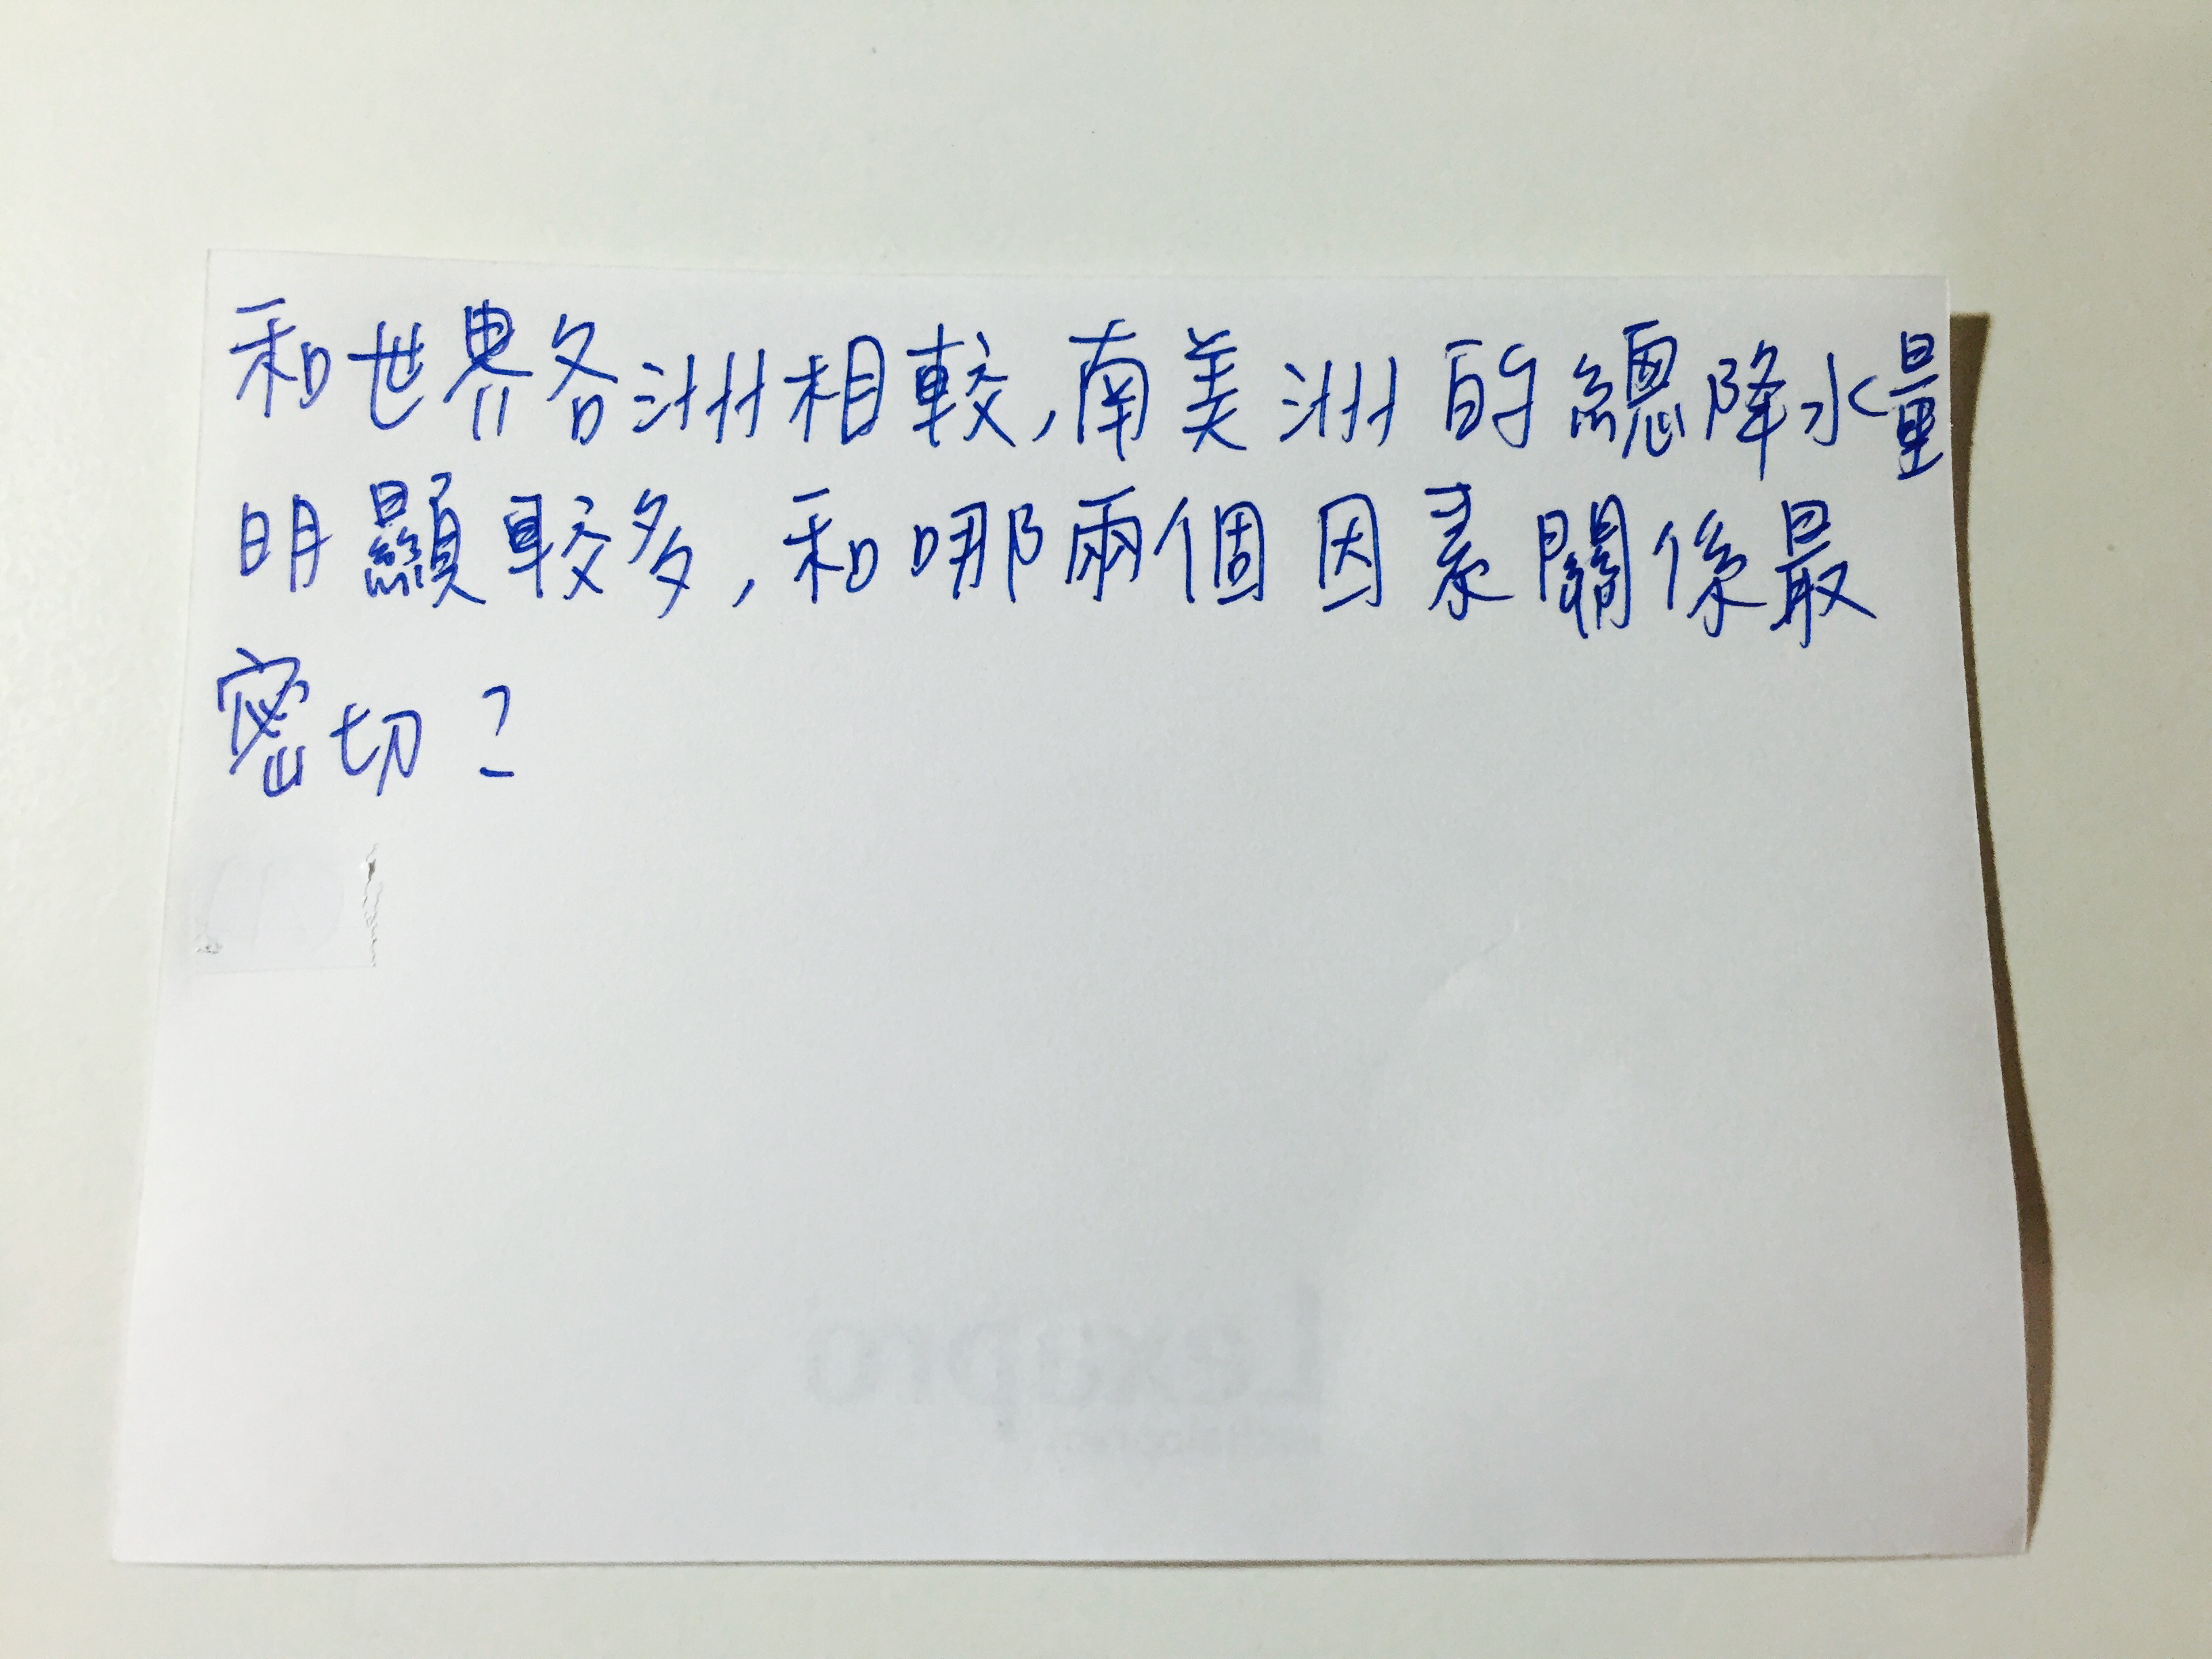 和世界各洲相較,南美洲的總降水量
明顯較多,和哪兩個因素關係最
密切?
Lexapro